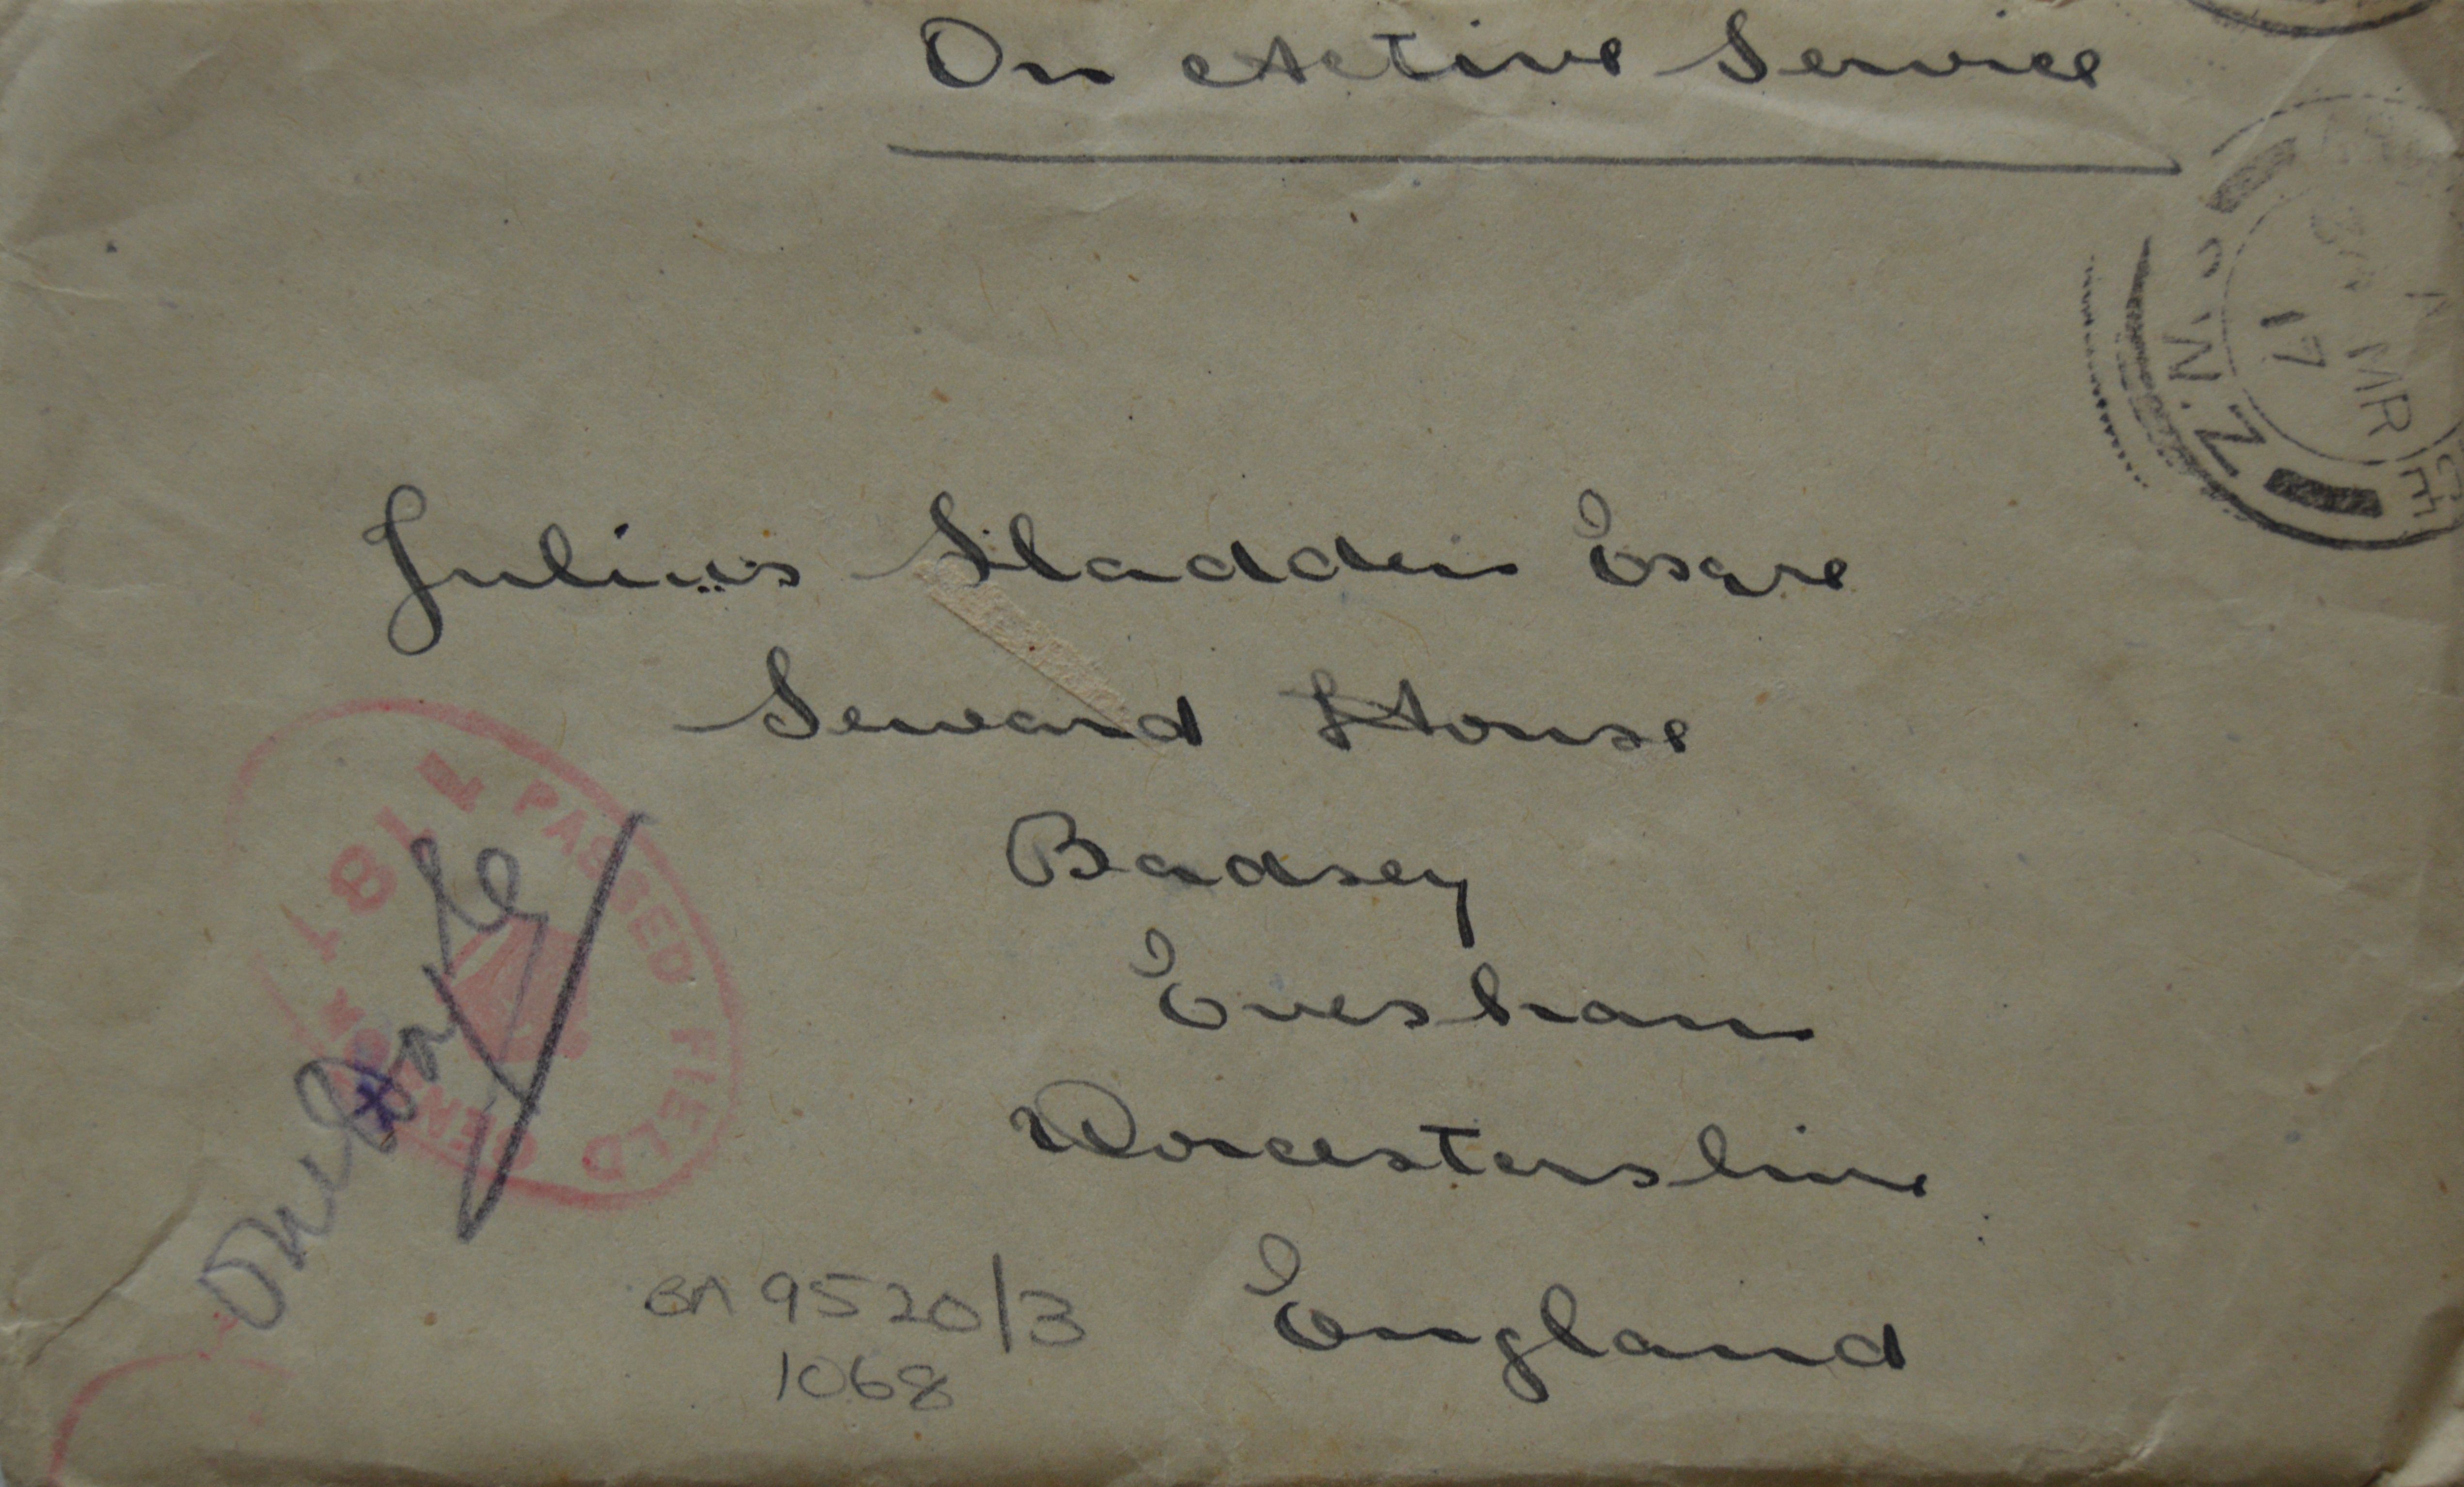 On Active Service
MR
17
N.Z
Julius Sladden Esqre
Seward House
Badsey
Evesham
Worcestershire
England
PASSED FIELD CENSOR
181
BA 9520/3
1068